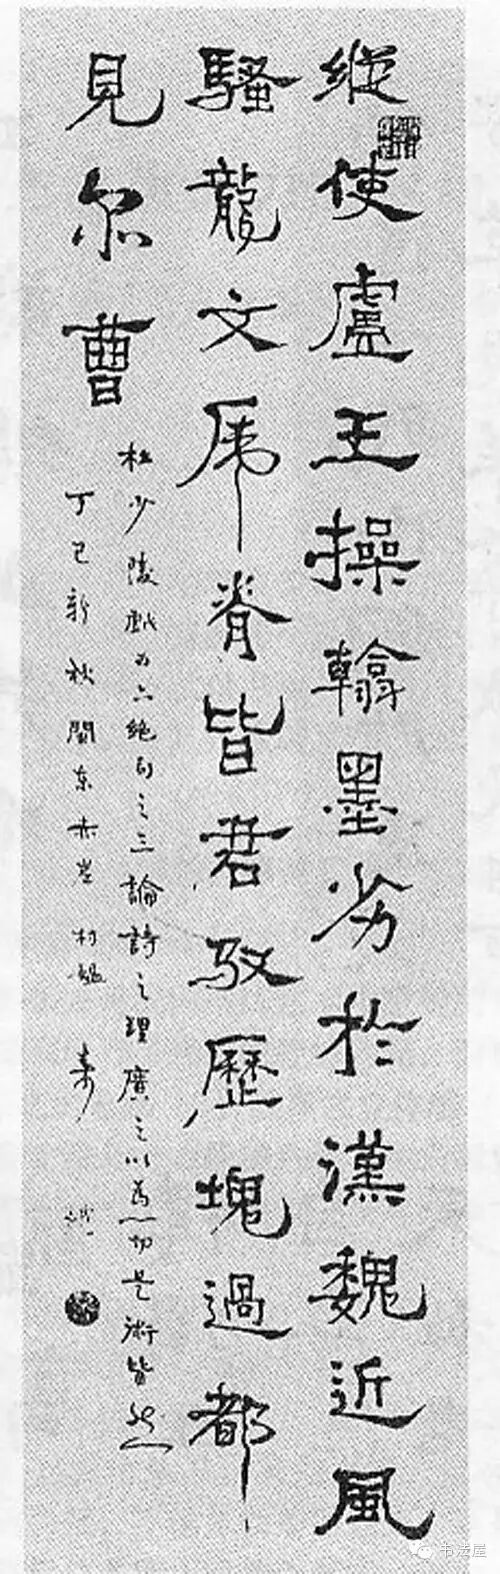 縱使盧王操翰墨劣於漢魏近風
騷龍文虎脊皆君馭歷塊過都
見尔曹
杜少陵戲为六絕句之三論詩之理廣之以為一切藝術皆然
丁巳新秋閩東
书法屋